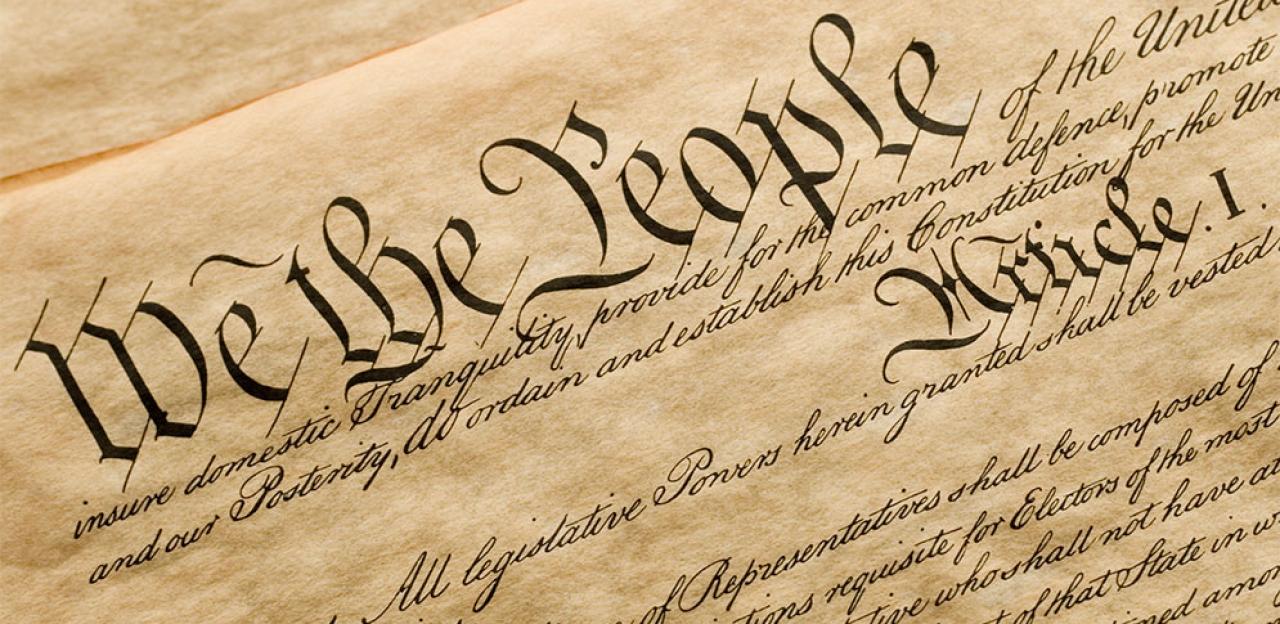 We the People of the United
insure domestic Tranquility, provide for the common defence, promote
and our Posterity, do ordain and establish this Constitution for the Un
Article. I.
All legislative Powers herein granted shall be vested
of Representatives shall be composed of
tions requisite for Electors of the most
tive who shall not have at
t of that State in w
ined among